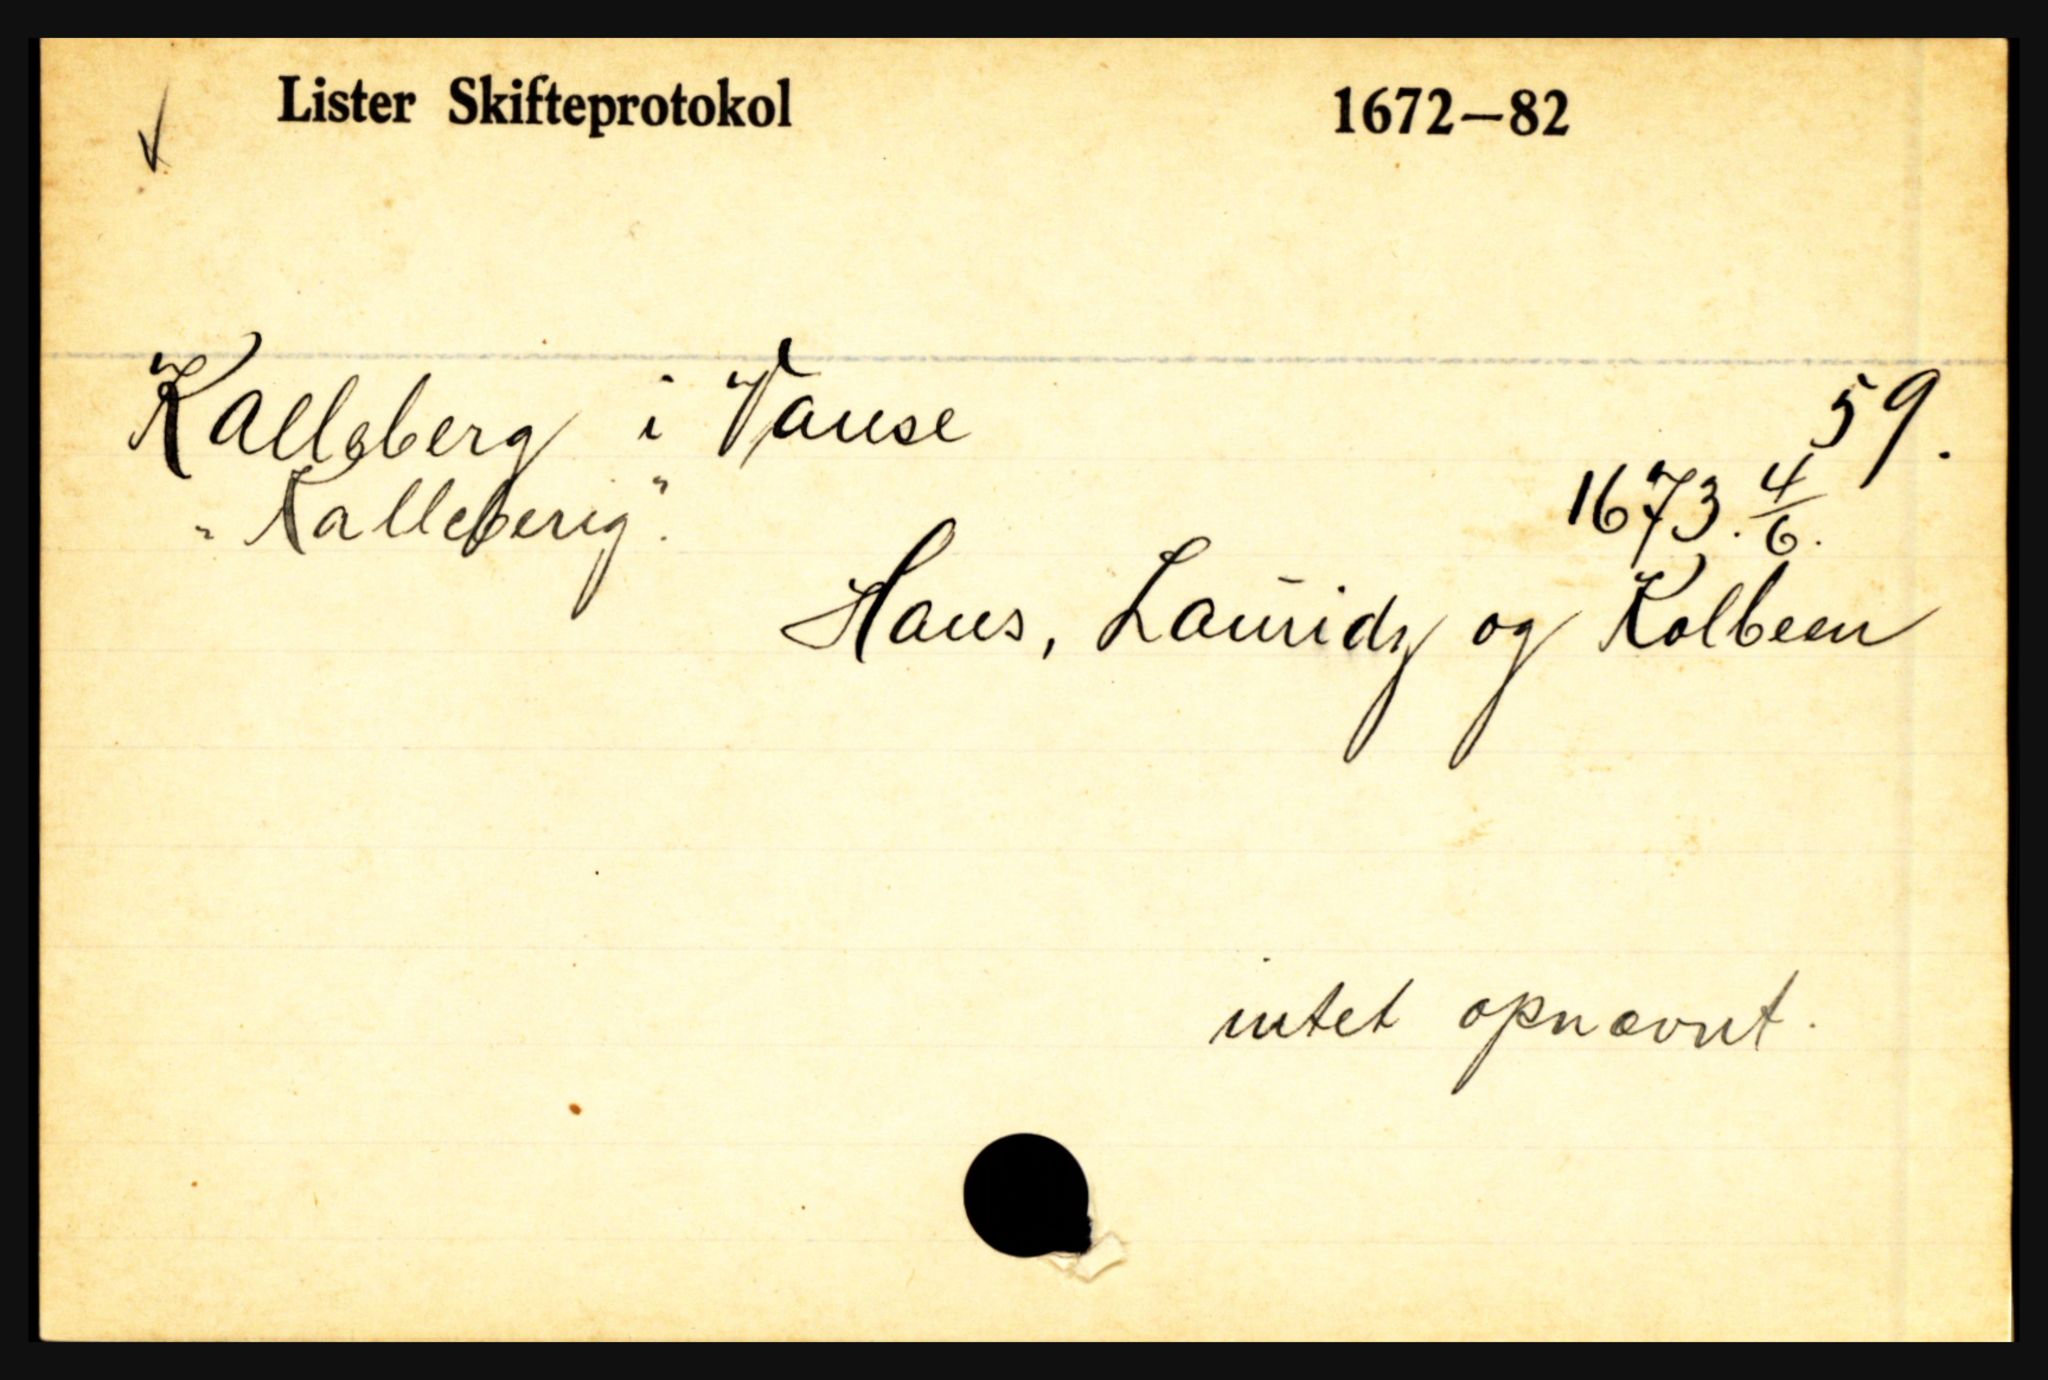 Lister Skifteprotokol 1672–82
Kalleberg i Vanse 59.
"Kalleberig". 1673. 4/6.
Hans, Lauridz og Kolbeen
intet opnævnt.